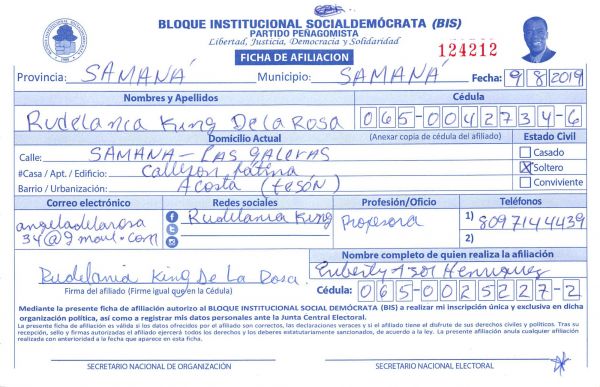 BLOQUE INSTITUCIONAL SOCIALDEMÓCRATA (BIS)
PARTIDO PEÑAGOMISTA
Libertad, Justicia, Democracia y Solidaridad
FICHA DE AFILIACION
124212
Provincia: SAMANÁ Municipio: SAMANÁ Fecha: 9/8/2019
Nombres y Apellidos Cédula
Rudelania King De La Rosa 065-0042734-6
Domicilio Actual (Anexar copia de cédula del afiliado) Estado Civil
Calle: SAMANA - Las galeras Casado
#Casa / Apt. / Edificio: Callejon Fátima X Soltero
Barrio / Urbanización: Acosta (tesón) Conviviente
Correo electrónico Redes sociales Profesión/Oficio Teléfonos
angeladelarosa Rudelania King Profesora 1) 8097144439
34@gmail.com 2)
Nombre completo de quien realiza la afiliación
Rudelania King De La Rosa Henriquez
Firma del afiliado (Firme igual que en la Cédula) Cédula: 065-0025227-2
Mediante la presente ficha de afiliación autorizo al BLOQUE INSTITUCIONAL SOCIAL DEMÓCRATA (BIS) a realizar mi inscripción única y exclusiva en dicha
organización política, así como a registrar mis datos personales ante la Junta Central Electoral.
La presente ficha de afiliación es válida si los datos ofrecidos por el afiliado son correctos, las declaraciones veraces y si el afiliado tiene el disfrute de sus derechos civiles y políticos. Tras su
recepción, sello y firmas autorizadas el afiliado ejercerá todos los derechos y los deberes estatutariamente sancionados, de acuerdo a la ley. La presente afiliación anula cualquier afiliación
realizada con anterioridad a la fecha que aparece en esta ficha.
SECRETARIO NACIONAL DE ORGANIZACIÓN SECRETARIO NACIONAL ELECTORAL